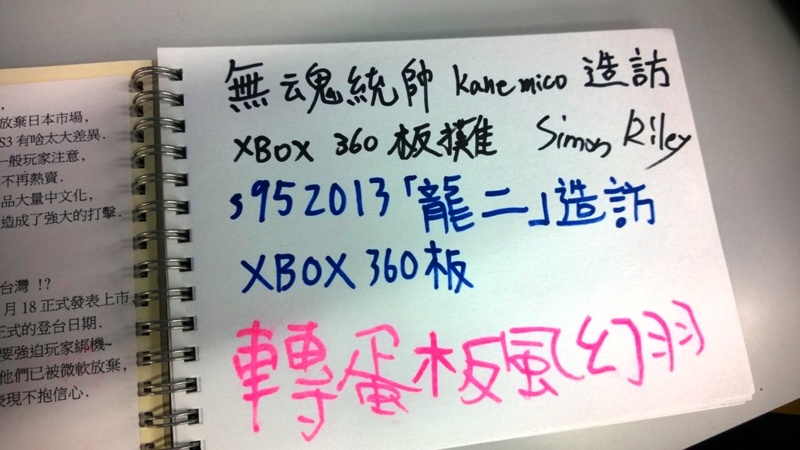 放棄日本市場,
S3 有啥太大差異.
一般玩家注意,
不再熱賣.
品大量中文化,
造成了強大的打擊.
台灣 !?
月 18 正式發表上市,
正式的登台日期.
要強迫玩家綁機~
他們已被微軟放棄,
表現不抱信心.
無魂統帥 kanemico 造訪
XBOX 360 板攤 Simon Riley
s952013「龍二」造訪
XBOX 360板
轉蛋板風(幻)羽